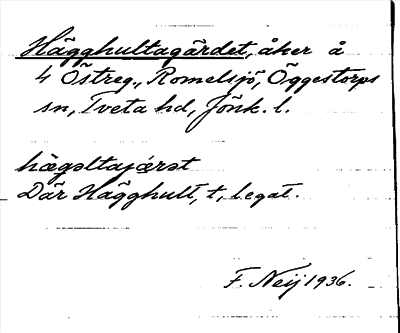 Hägghultagärdet, åker å
4 Östreg., Romelsjö, Öggestorps
sn, Tveta hd, Jönk. l.
hægəltajæ̣rət
Där Hägghult, t, legat.
F. Neij 1936.